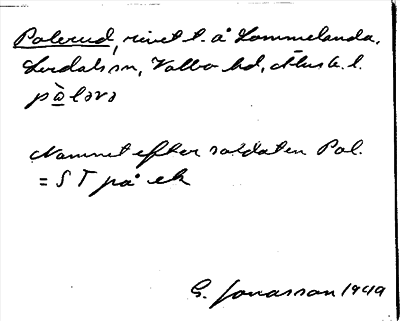 Polerud, rivet t. å Hommelanda,
Lerdals sn, Valbo hd, Älvsb. l.
pòlərə
Namnet efter soldaten Pol.
= S T på ek
G. Jonasson 1949